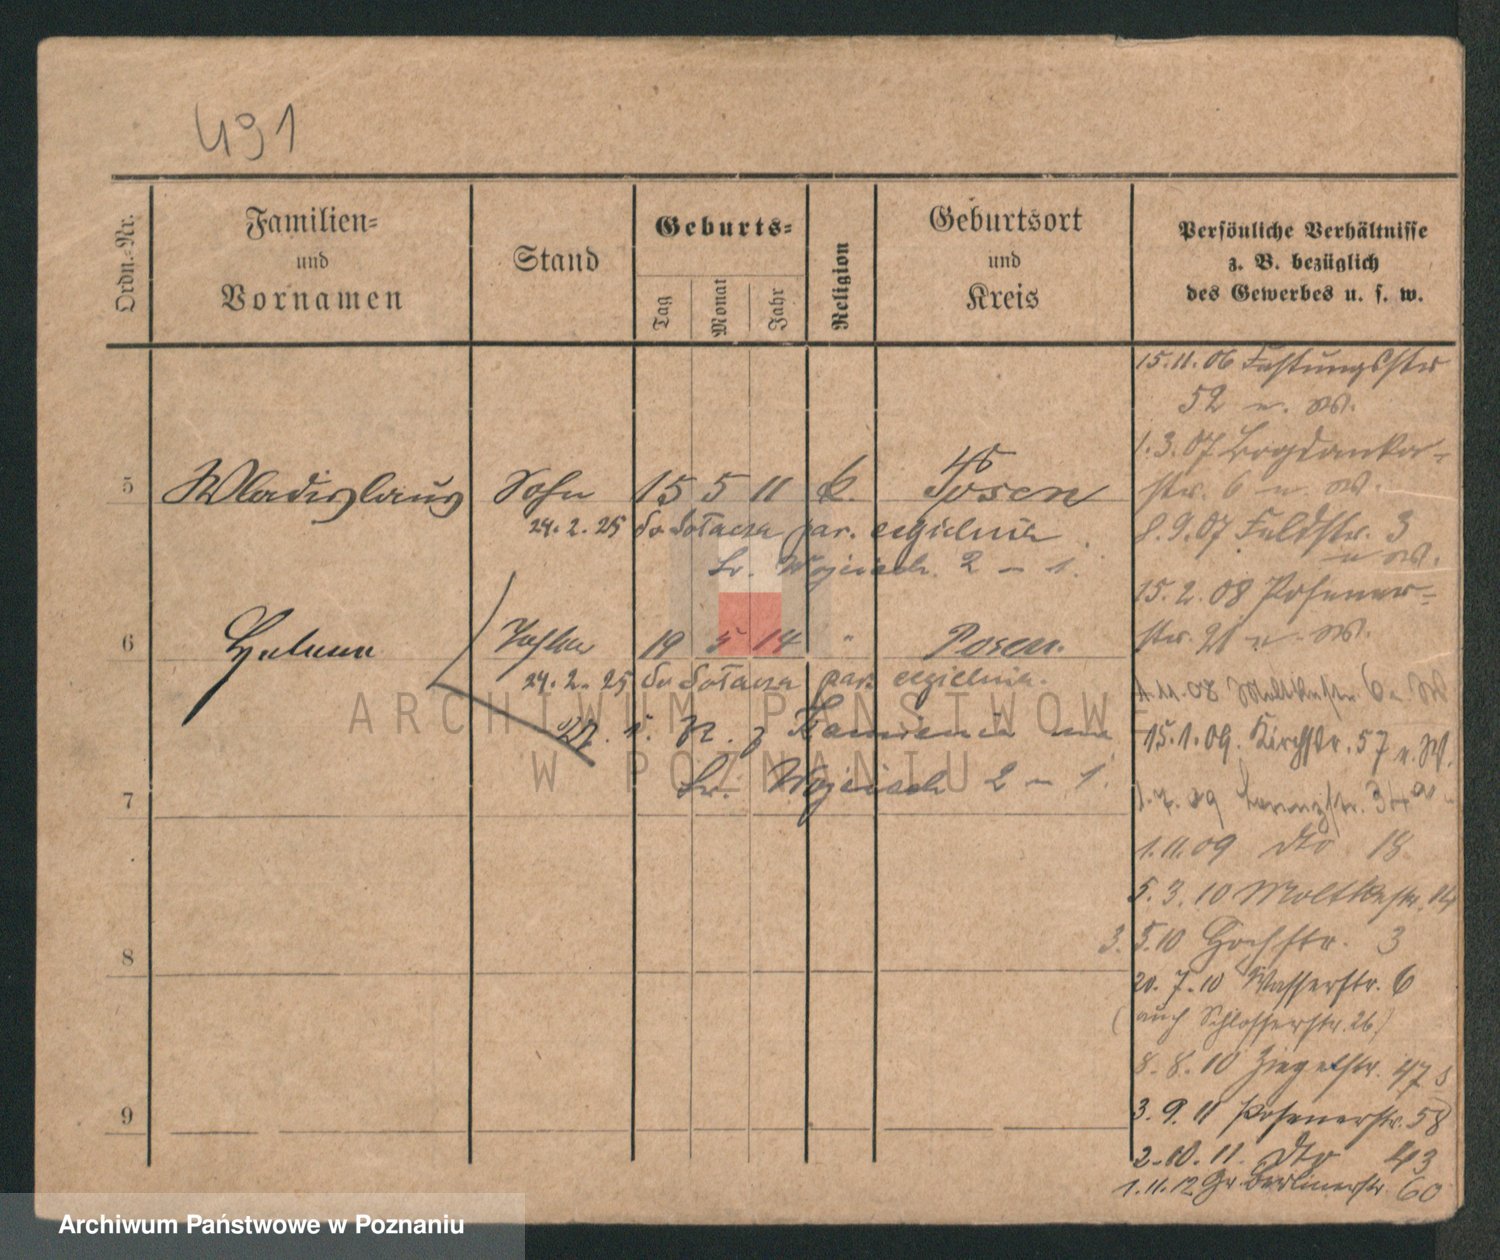 491
Ordn.-Nr.
Familien-
und
Vornamen
Stand
Geburts-
Tag
Monat
Jahr
Religion
Geburtsort
und
Kreis
Persönliche Verhältnisse
z. B. bezüglich
des Gewerbes u. s. w.
5 Wladislaus Sohn 15 5 11 k. Posen
24.2.25 do Sołacza par. cegielnia
Św. Wojciech 2 - 1.
6 Helena Tochter 19 5 14 " Posen.
24.2.25 do Sołacza par. cegielnia.
z Kamienia na
Św. Wojciech 2 - 1.
7
8
9
15.11.06 Festungsstr
52 n. W.
1.3.07 Bogdanka-
str. 6 n. W.
8.9.07 Feldstr. 3
n W.
15.2.08 Posener-
str. 21 n. W.
1.11.08 Moltkestr. 6 n. W
15.1.09. Kirchstr. 57 n. W.
1.7.09 34a
1.11.09 dto 18
5.3.10 Moltkestr. 14
3.5.10 Hochstr. 3
20.7.10 Wasserstr. 6
(auch Schlosserstr. 26)
8.8.10 Ziegelstr. 47
3.9.11 Posenerstr. 58
2.10.11. dto 43
1.11.12 Gr. Berlinerstr. 60
ARCHIWUM PAŃSTWOWE
W POZNANIU
Archiwum Państwowe w Poznaniu